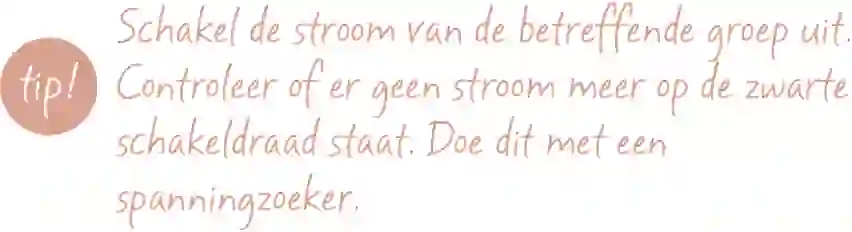 Schakel de stroom van de betreffende groep uit.
tip! Controleer of er geen stroom meer op de zwarte
schakeldraad staat. Doe dit met een
spanningzoeker.